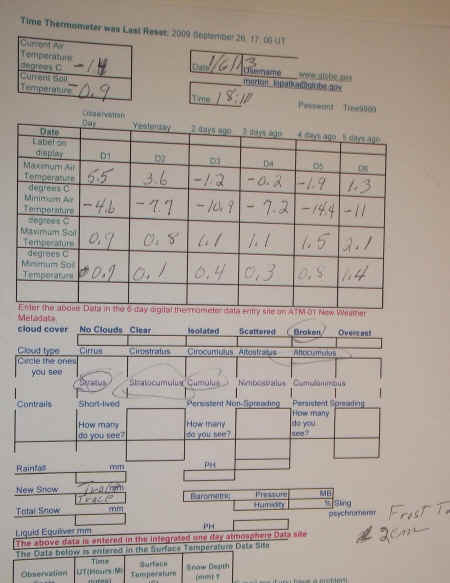 Time Thermometer was Last Reset: 2009 September 28, 17, 06 UT
Current Air Temperature degrees C -14
Date 1/6/13 Username www.globe.gov
Current Soil Temperature -0.9
Time 18:10 Password
Observation Day Yesterday 2 days ago 3 days ago 4 days ago 5 days ago
Date
Label on display D1 D2 D3 D4 D5 D6
Maximum Air Temperature 5.5 3.6 -1.2 -0.2 -1.9 1.3
degrees C Minimum Air Temperature -4.6 -7.7 -10.9 -7.2 -14.4 -11
degrees C Maximum Soil Temperature 0.9 0.8 1.1 1.1 1.5 2.1
degrees C Minimum Soil Temperature 0.1 0.4 0.3 0.8 1.4
Enter the above Data in the 6 day digital thermometer data entry site on ATM-01 New Weather
Metadata.
cloud cover No Clouds Clear Isolated Scattered Broken Overcast
Cloud type Cirrus Cirostratus Cirocumulus Altostratus Altocumulus
Circle the ones you see
Stratus Stratocumulus Cumulus Nimbostratus Cumulonimbus
Contrails Short-lived Persistent Non-Spreading Persistent Spreading
How many do you see? How many do you see? How many do you see?
Rainfall mm PH
New Snow Trace mm
Barometric Pressure MB
Humidity % Sling psychrometer
Total Snow mm
Frost
2cm
Liquid Equiliver mm PH
The above data is entered in the integrated one day atmosphere Data site
The Data below is entered in the Surface Temperature Data Site
Observation Time UT(Hours:Mi Surface Temperature Snow Depth (mm) t